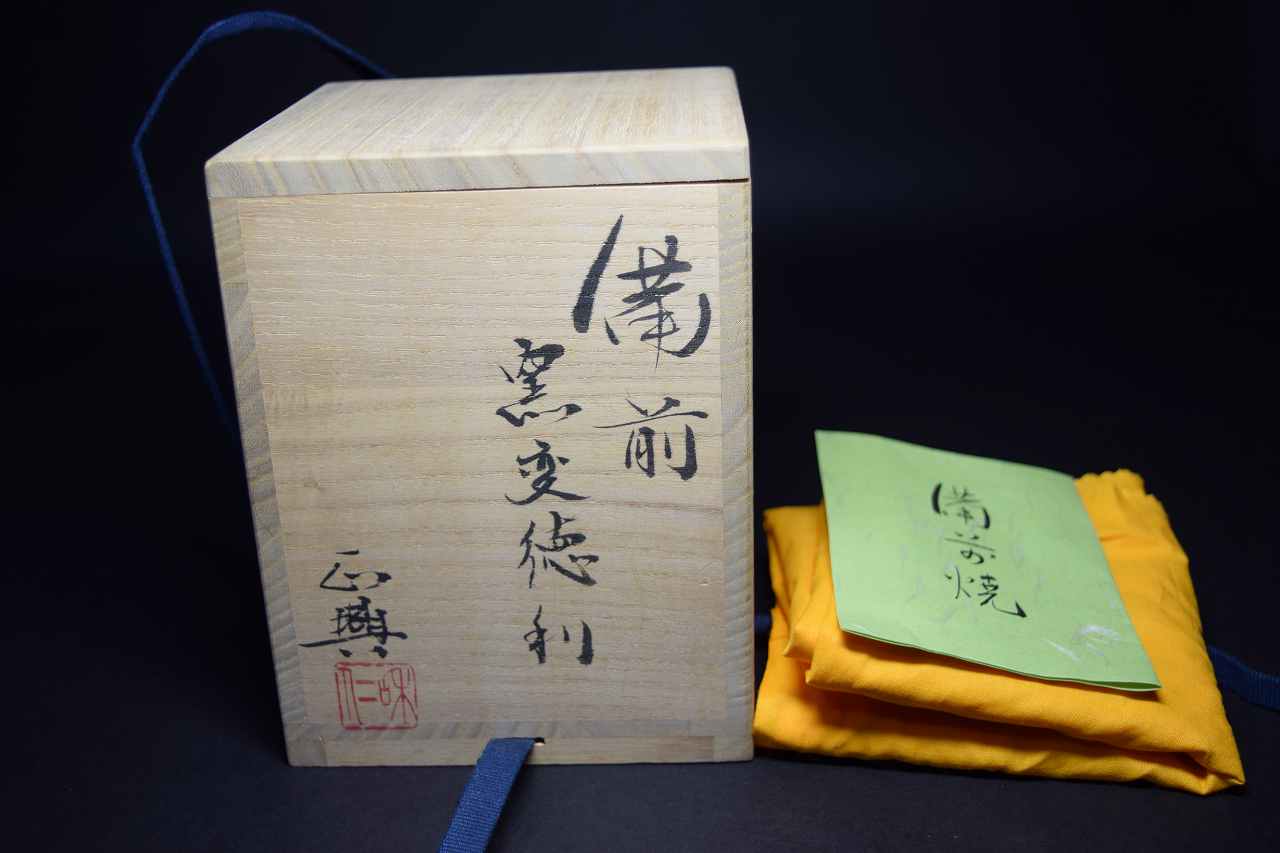 備前
窯変徳利
正興
備前焼